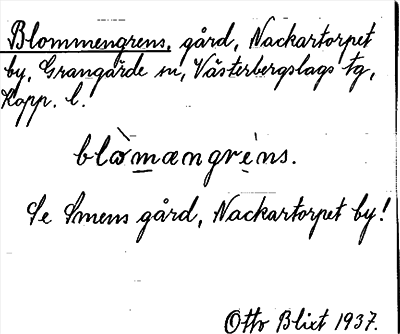 Blommengrens, gård, Nackartorpet
by, Grangärde sn, Västerbergslags tg,
Kopp. l.
blòmængrèns.
Se Smens gård, Nackartorpet by!
Otto Blixt 1937.